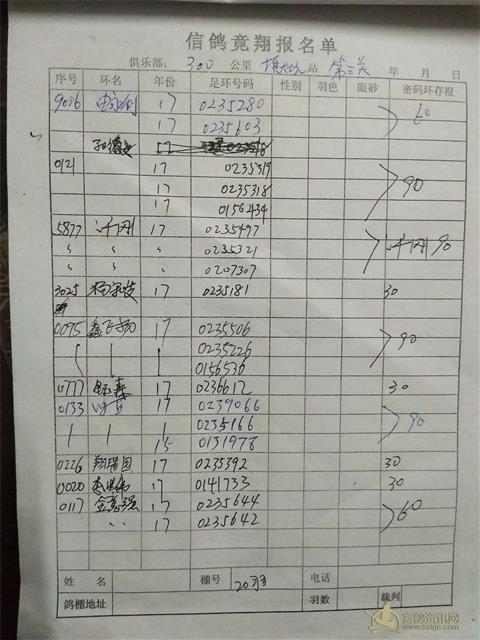 信鸽竞翔报名单
俱乐部: 300 公里 站 第三关 年 月 日
序号 环名 年份 足环号码 性别 羽色 眼砂 密码环存根
9086 17 0235280
17 0235603 60
17
0121 17 0235319
17 0235318 90
17 0156434
5877 17 0235497
〃 〃 〃 0235321 90
〃 〃 〃 0207307
3025 17 0235181 30
0095 鑫飞扬 17 0235506
0235226 90
0156536
0777 17 0236612 30
0133 17 0239066
0235166 90
15 0131978
0226 翔瑞园 17 0235392 30
0020 17 0141733 30
0117 17 0235644
〃 17 0235642 60
姓名 棚号 20羽 电话
鸽棚地址 羽数 裁判
赛鸽资讯网
www.saige.com